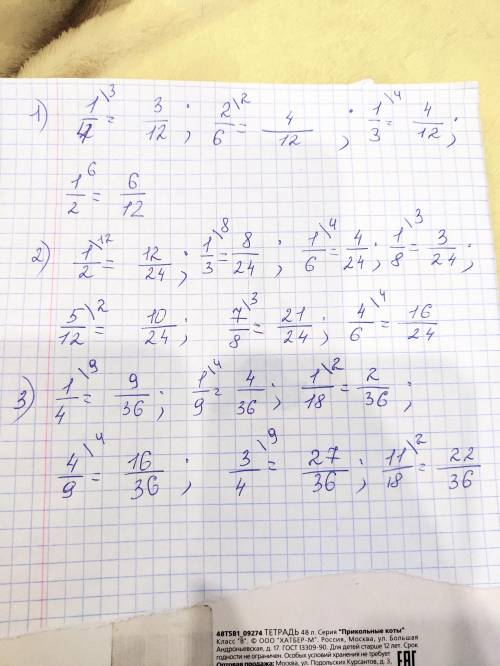 1) 1/4\3 = 3/12 ; 2/6\2 = 4/12 ; 1/3\4 = 4/12 ;
1/2 6 = 6/12
2) 1/2\12 = 12/24 ; 1/3\8 = 8/24 ; 1/6\4 = 4/24 ; 1/8\3 = 3/24 ;
5/12\2 = 10/24 ; 7/8\3 = 21/24 ; 4/6\4 = 16/24
3) 1/4\9 = 9/36 ; 1/9\4 = 4/36 ; 1/18\2 = 2/36 ;
4/9\4 = 16/36 ; 3/4\9 = 27/36 ; 11/18\2 = 22/36
48Т5В1_09274 ТЕТРАДЬ 48 л. Серия "Прикольные коты"
Класс "В". © ООО "ХАТБЕР-М". Россия, Москва, ул. Большая
Андроньевская, д. 17. ГОСТ 13309-90. Для детей старше 12 лет. Срок
годности не ограничен. Особых условий хранения не требует
Оптовая продажа: Москва, ул. Подольских Курсантов, д. 3,
ЕАС